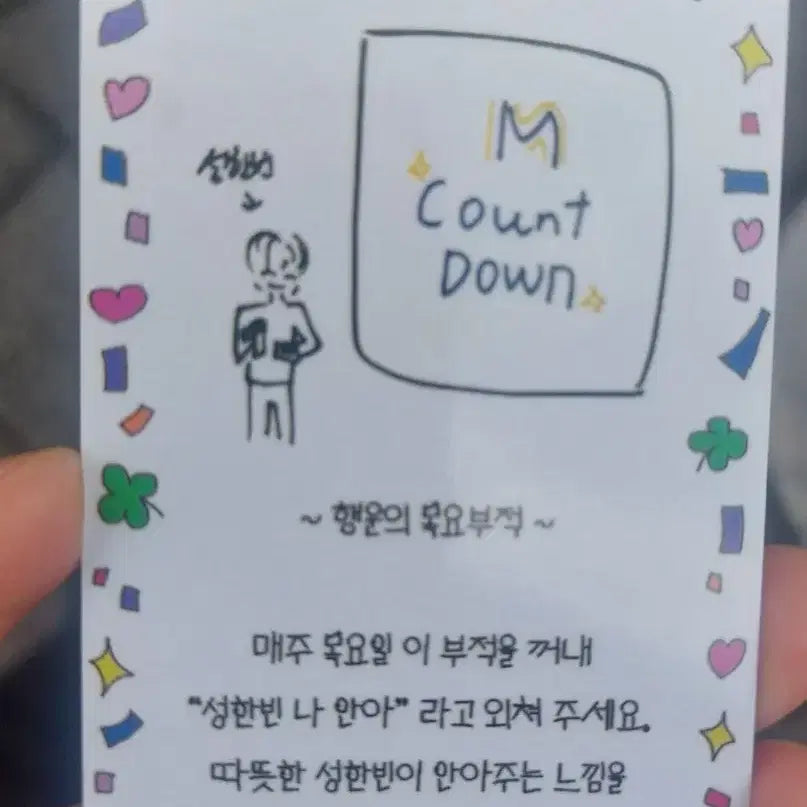 성한빈
M
Count
Down
~ 행운의 목요부적 ~
매주 목요일 이 부적을 꺼내
"성한빈 나 안아" 라고 외쳐 주세요.
따뜻한 성한빈이 안아주는 느낌을